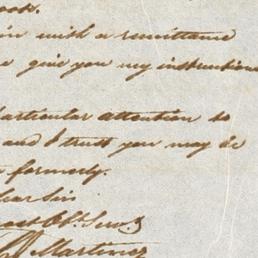 ook.
in with a remittance
e give you my instructions
articular attention to
and I trust you may be
formerly.
ear Sir
Obt. Servt.
Martinez